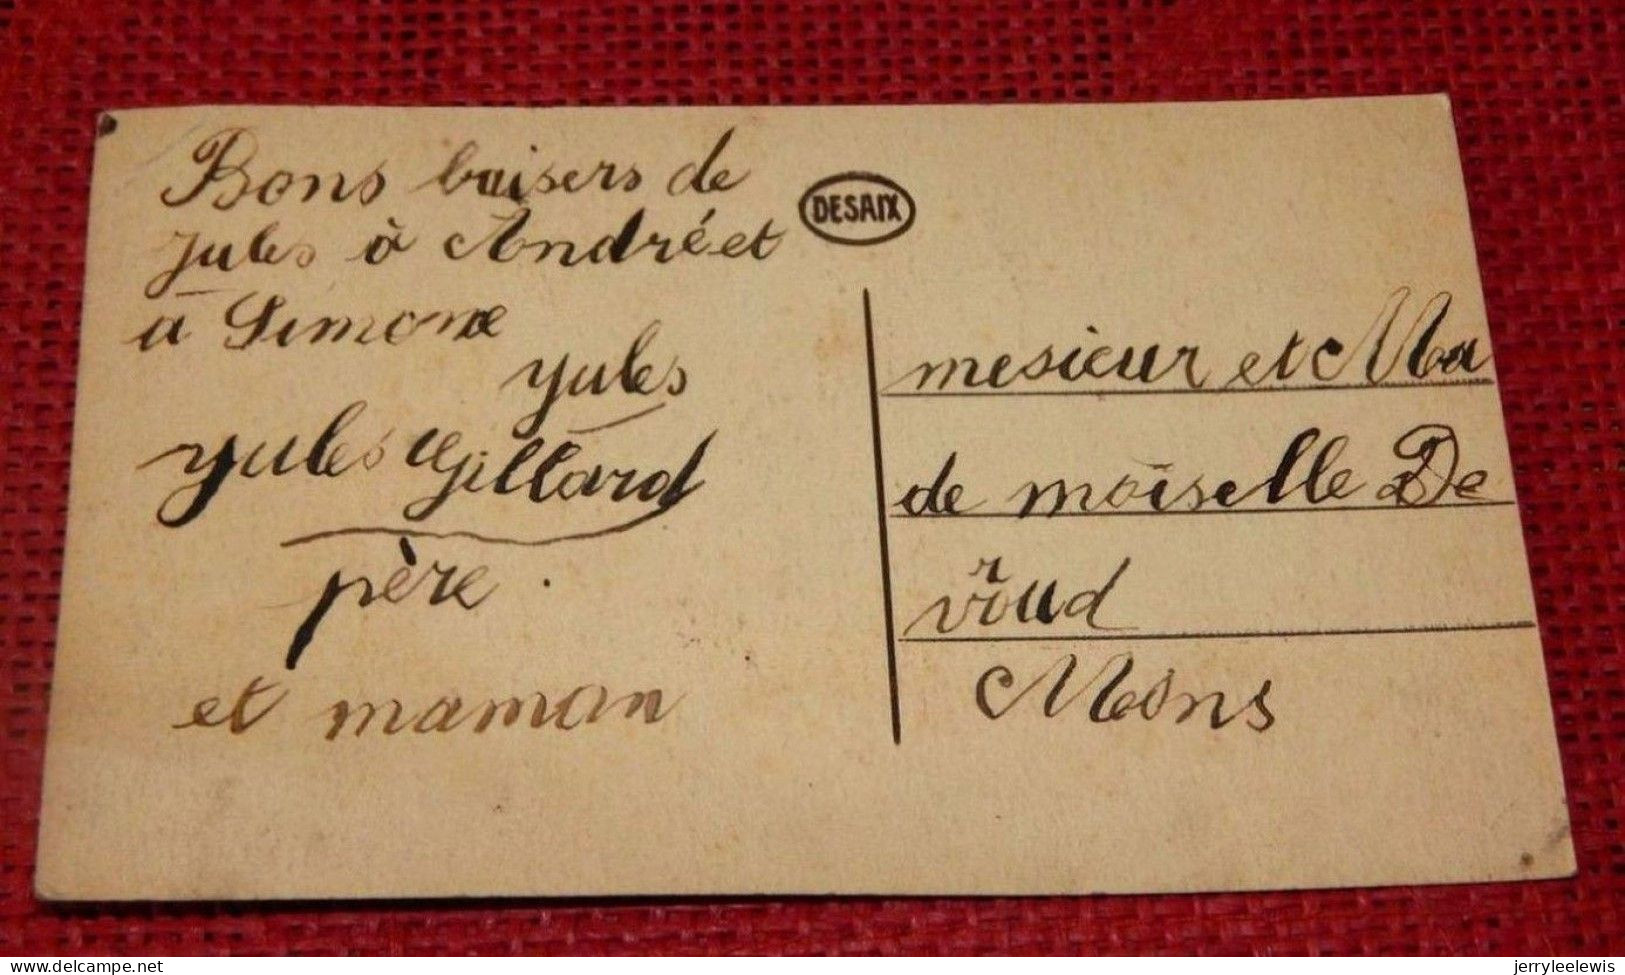 Bons baisers de
Jules à André et
à Simone
Jules
Jules Gillard
père.
et maman
DESAIX
mesieur et Ma
de moiselle De
vroud
Mons
delcampe.net
jerryleelewis